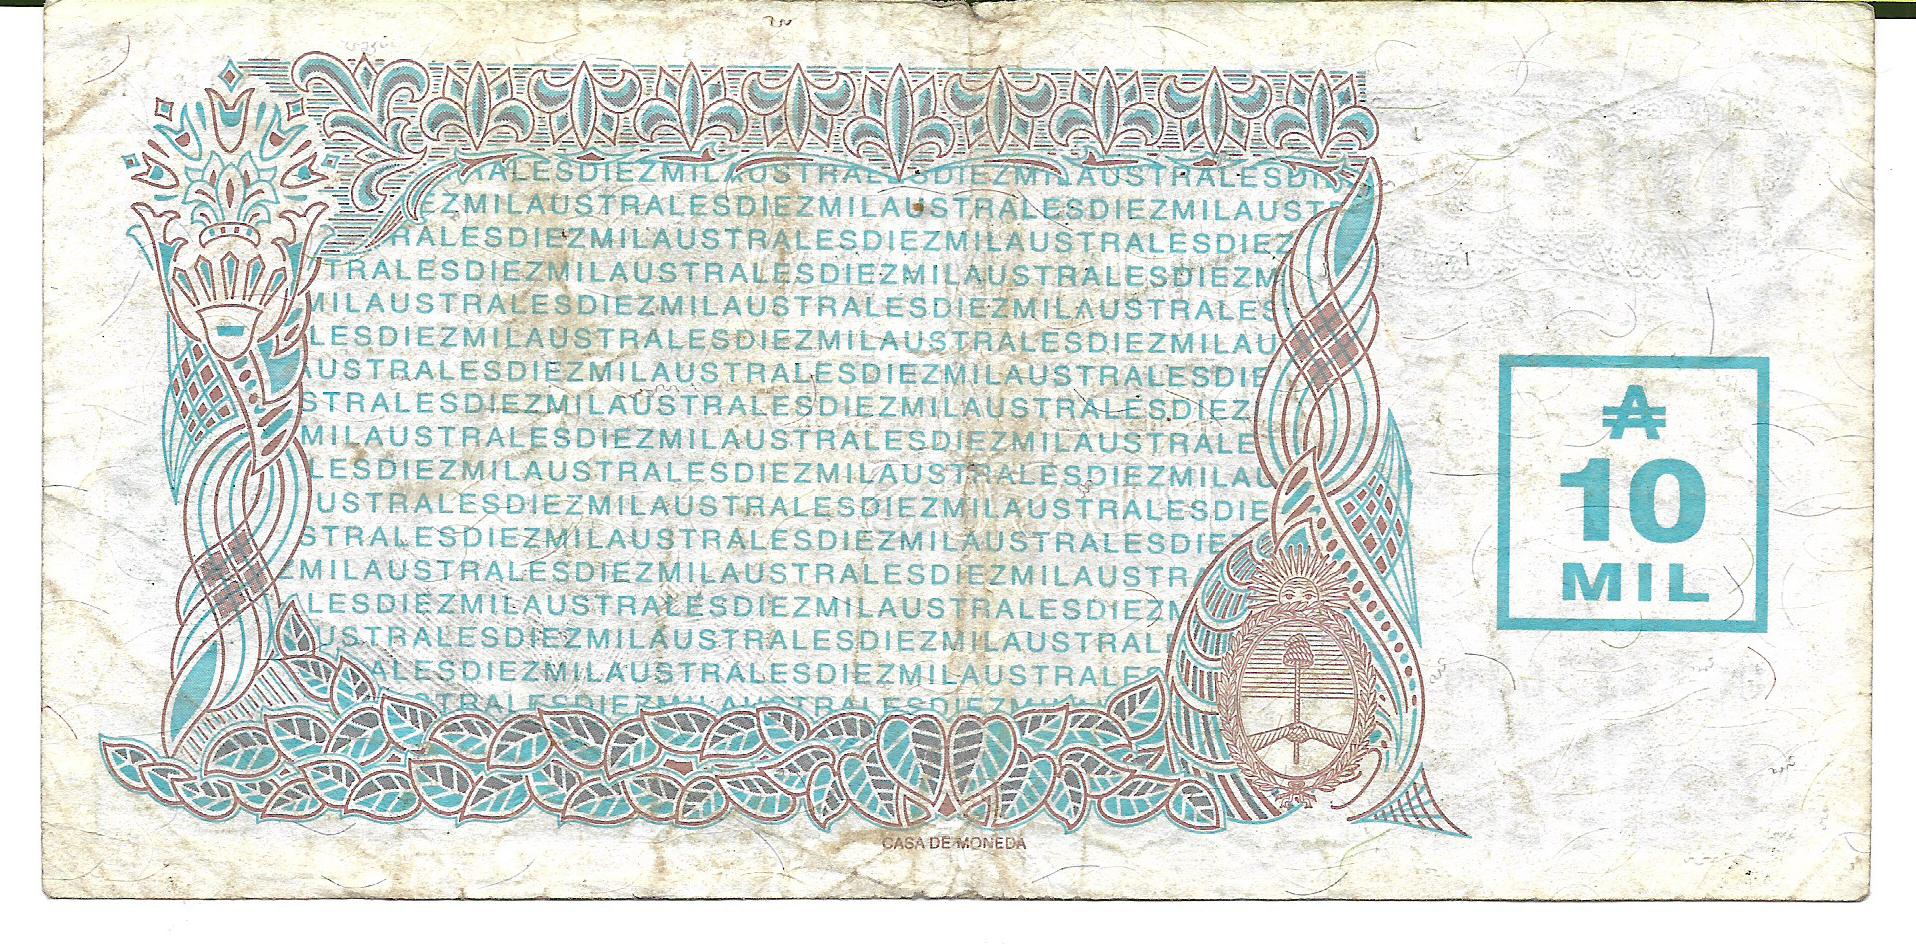 RALESDIEZMILAUSTRALESDIEZMILAUSTRALESDI
EZMILAUSTRALESDIEZMILAUSTRALESDIEZMILAUST
RALESDIEZMILAUSTRALESDIEZMILAUSTRALESDIEZ
TRALESDIEZMILAUSTRALESDIEZMILAUSTRALESDIEZM
MILAUSTRALESDIEZMILAUSTRALESDIEZMILAUSTRALES
LESDIEZMILAUSTRALESDIEZMILAUSTRALESDIEZMILAU
AUSTRALESDIEZMILAUSTRALESDIEZMILAUSTRALESDIE
STRALESDIEZMILAUSTRALESDIEZMILAUSTRALESDIEZ
MILAUSTRALESDIEZMILAUSTRALESDIEZMILAUSTRALE
LESDIEZMILAUSTRALESDIEZMILAUSTRALESDIEZMILAU
USTRALESDIEZMILAUSTRALESDIEZMILAUSTRALESDIE
STRALESDIEZMILAUSTRALESDIEZMILAUSTRALESDIE
ZMILAUSTRALESDIEZMILAUSTRALESDIEZMILAUSTR
LESDIEZMILAUSTRALESDIEZMILAUSTRALESDIEZM
USTRALESDIEZMILAUSTRALESDIEZMILAUSTRAL
ALESDIEZMILAUSTRALESDIEZMILAUSTRALES
TRALESDIEZMILAUSTRALESDIEZMIL
CASA DE MONEDA
₳
10
MIL